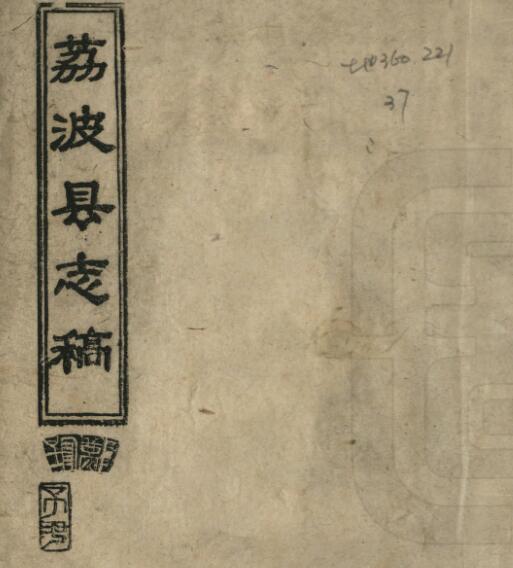 荔波县志稿
地360.221
37